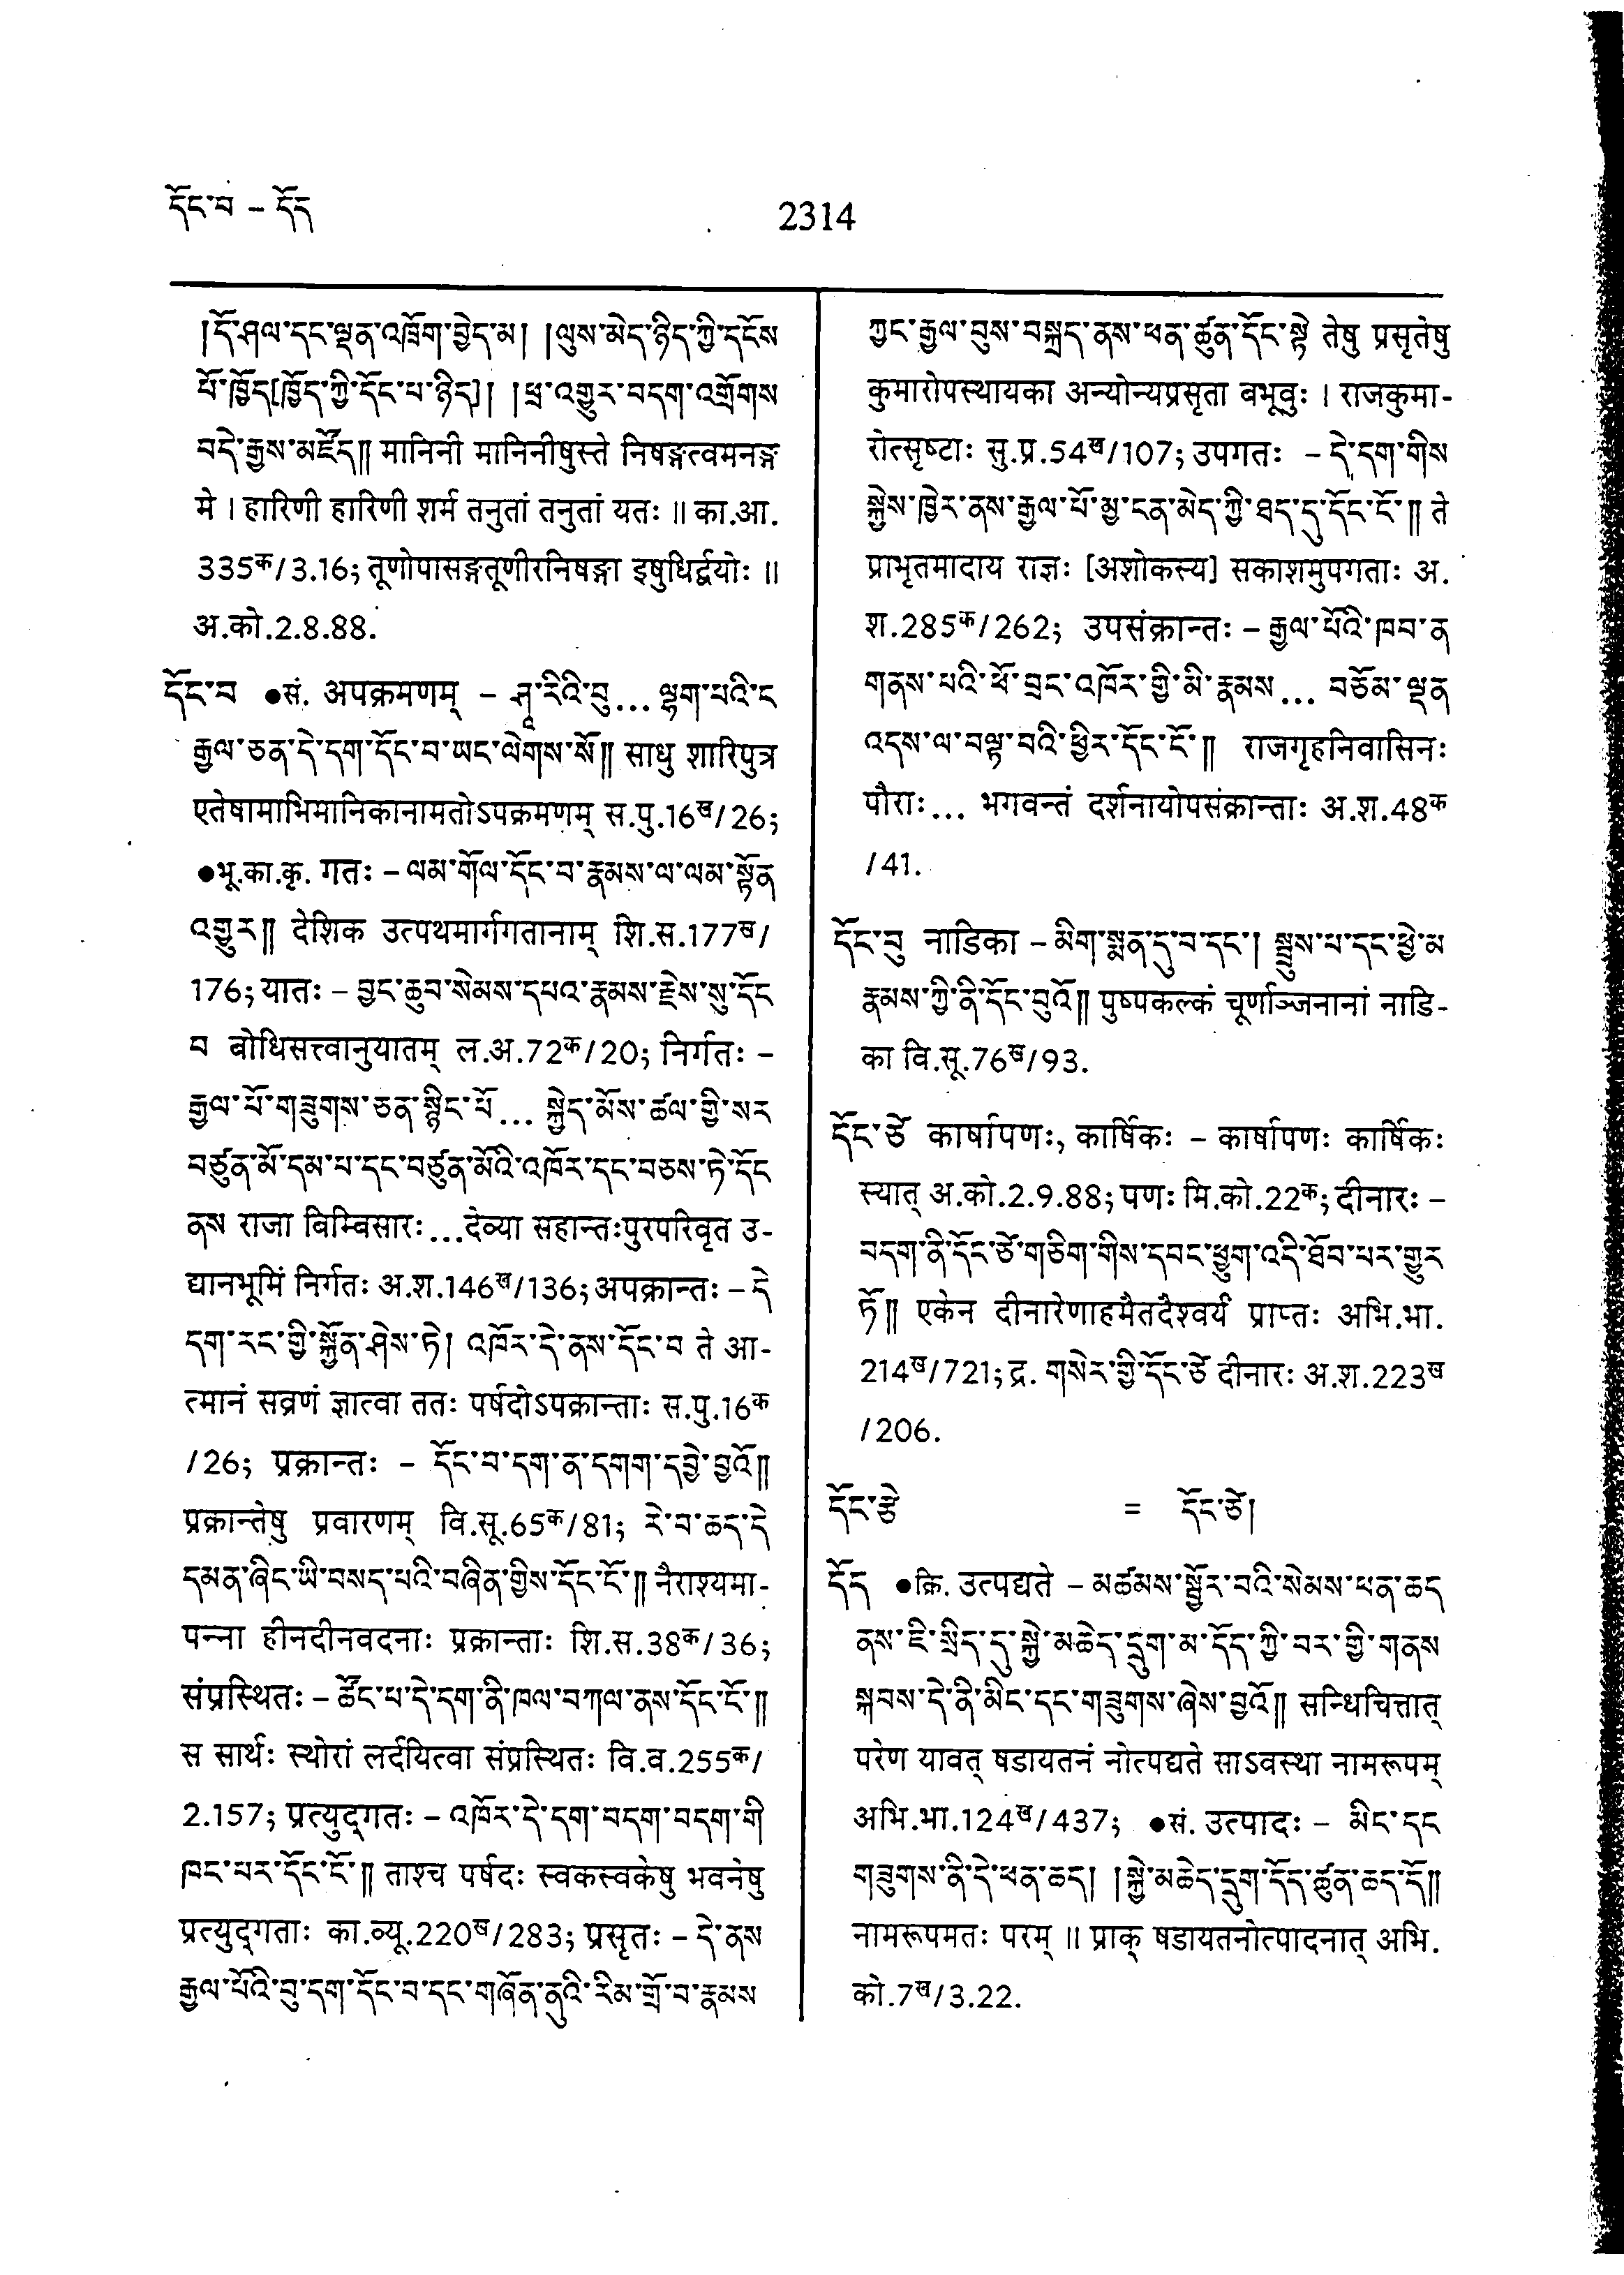 དོང་བ – དོད
2314
།དོ་ཤལ་དང་ལྡན་འཕྲོག་བྱེད་མ། །ལུས་མེད་ཉིད་ཀྱི་དངོས
པོ་ཁྱོད[ཁྱོད་ཀྱི་དོང་པ་ཉིད]། །ཕྲ་འགྱུར་བདག་འགྲོགས
བདེ་རྒྱས་མཛོད།། मानिनी मानिनीषुस्ते निषङ्गत्वमनङ्ग
मे । हारिणी हारिणी शर्म तनुतां तनुतां यतः ॥ का.आ.
335क/3.16; तूणोपासङ्गतूणीरनिषङ्गा इषुधिर्द्वयोः ॥
अ.को.2.8.88.
དོང་བ ●सं. अपक्रमणम् – ཤཱ་རིའི་བུ... ལྷག་པའི་ང
རྒྱལ་ཅན་དེ་དག་དོང་བ་ཡང་ལེགས་སོ།། साधु शारिपुत्र
एतेषामाभिमानिकानामतोऽपक्रमणम् स.पु.16ख/26;
●भू.का.कृ. गतः – ལམ་གོལ་དོང་བ་རྣམས་ལ་ལམ་སྟོན
འགྱུར།། देशिक उत्पथमार्गगतानाम् शि.स.177ख/
176; यातः – བྱང་ཆུབ་སེམས་དཔའ་རྣམས་རྗེས་སུ་དོང
བ बोधिसत्त्वानुयातम् ल.अ.72क/20; निर्गतः –
རྒྱལ་པོ་གཟུགས་ཅན་སྙིང་པོ... སྐྱེད་མོས་ཚལ་གྱི་སར
བཙུན་མོ་དམ་པ་དང་བཙུན་མོའི་འཁོར་དང་བཅས་ཏེ་དོང
ནས राजा बिम्बिसारः...देव्या सहान्तःपुरपरिवृत उ-
द्यानभूमिं निर्गतः अ.श.146ख/136; अपक्रान्तः – དེ
དག་རང་གྱི་སྐྱོན་ཤེས་ཏེ། འཁོར་དེ་ནས་དོང་བ ते आ-
त्मानं सव्रणं ज्ञात्वा ततः पर्षदोऽपक्रान्ताः स.पु.16क
/26; प्रक्रान्तः – དོང་བ་དག་ན་དགག་དབྱེ་བྱའོ།།
प्रक्रान्तेषु प्रवारणम् वि.सू.65क/81; རེ་བ་ཆད་དེ
དམན་ཞིང་ཡི་བསད་པའི་བཞིན་གྱིས་དོང་ངོ་།། नैराश्यमा-
पन्ना हीनदीनवदनाः प्रक्रान्ताः शि.स.38क/36;
संप्रस्थितः – ཚོང་པ་དེ་དག་ནི་ཁལ་བཀལ་ནས་དོང་ངོ་།།
स सार्थः स्थोरां लर्दयित्वा संप्रस्थितः वि.व.255क/
2.157; प्रत्युद्गतः – འཁོར་དེ་དག་བདག་བདག་གི
ཁང་པར་དོང་ངོ་།། ताश्च पर्षदः स्वकस्वकेषु भवनेषु
प्रत्युद्गताः का.व्यू.220ख/283; प्रसृतः – དེ་ནས
རྒྱལ་པོའི་བུ་དག་དོང་བ་དང་གཞོན་ནུའི་རིམ་གྲོ་བ་རྣམས
ཀྱང་རྒྱལ་བུས་བསྐྲད་ནས་ཕན་ཚུན་དོང་སྟེ तेषु प्रसृतेषु
कुमारोपस्थायका अन्योन्यप्रसृता बभूवुः । राजकुमा-
रोत्सृष्टाः सु.प्र.54ख/107; उपगतः – དེ་དག་གིས
སྐྱེས་ཁྱེར་ནས་རྒྱལ་པོ་མྱ་ངན་མེད་ཀྱི་ཐད་དུ་དོང་ངོ་།། ते
प्राभृतमादाय राज्ञः [अशोकस्य] सकाशमुपगताः अ.
श.285क/262; उपसंक्रान्तः – རྒྱལ་པོའི་ཁབ་ན
གནས་པའི་ཕོ་བྲང་འཁོར་གྱི་མི་རྣམས... བཅོམ་ལྡན
འདས་ལ་བལྟ་བའི་ཕྱིར་དོང་ངོ་།། राजगृहनिवासिनः
पौराः... भगवन्तं दर्शनायोपसंक्रान्ताः अ.श.48क
/41.
དོང་བུ नाडिका – མིག་སྨན་དུ་བ་དང་། སྦྲུས་པ་དང་ཕྱེ་མ
རྣམས་ཀྱི་ནི་དོང་བུའོ།། पुष्पकल्कं चूर्णाञ्जनानां नाडि-
का वि.सू.76ख/93.
དོང་ཙེ कार्षापणः, कार्षिकः – कार्षापणः कार्षिकः
स्यात् अ.को.2.9.88; पणः मि.को.22क; दीनारः –
བདག་ནི་དོང་ཙེ་གཅིག་གིས་དབང་ཕྱུག་འདི་ཐོབ་པར་གྱུར
ཏོ།། एकेन दीनारेणाहमैतदैश्वर्यं प्राप्तः अभि.भा.
214ख/721; द्र. གསེར་གྱི་དོང་ཙེ दीनारः अ.श.223ख
/206.
དོང་རྩེ = དོང་ཙེ།
དོད ●क्रि. उत्पद्यते – མཚམས་སྦྱོར་བའི་སེམས་པན་ཆད
ནས་ཇི་སྲིད་དུ་སྐྱེ་མཆེད་དྲུག་མ་དོད་ཀྱི་བར་གྱི་གནས
སྐབས་དེ་ནི་མིང་དང་གཟུགས་ཞེས་བྱའོ།། सन्धिचित्तात्
परेण यावत् षडायतनं नोत्पद्यते साऽवस्था नामरूपम्
अभि.भा.124ख/437; ●सं. उत्पादः – མིང་དང
གཟུགས་ནི་དེ་ཕན་ཆད། །སྐྱེ་མཆེད་དྲུག་དོད་ཚུན་ཆད་དོ།།
नामरूपमतः परम् ॥ प्राक् षडायतनोत्पादनात् अभि.
को.7ख/3.22.